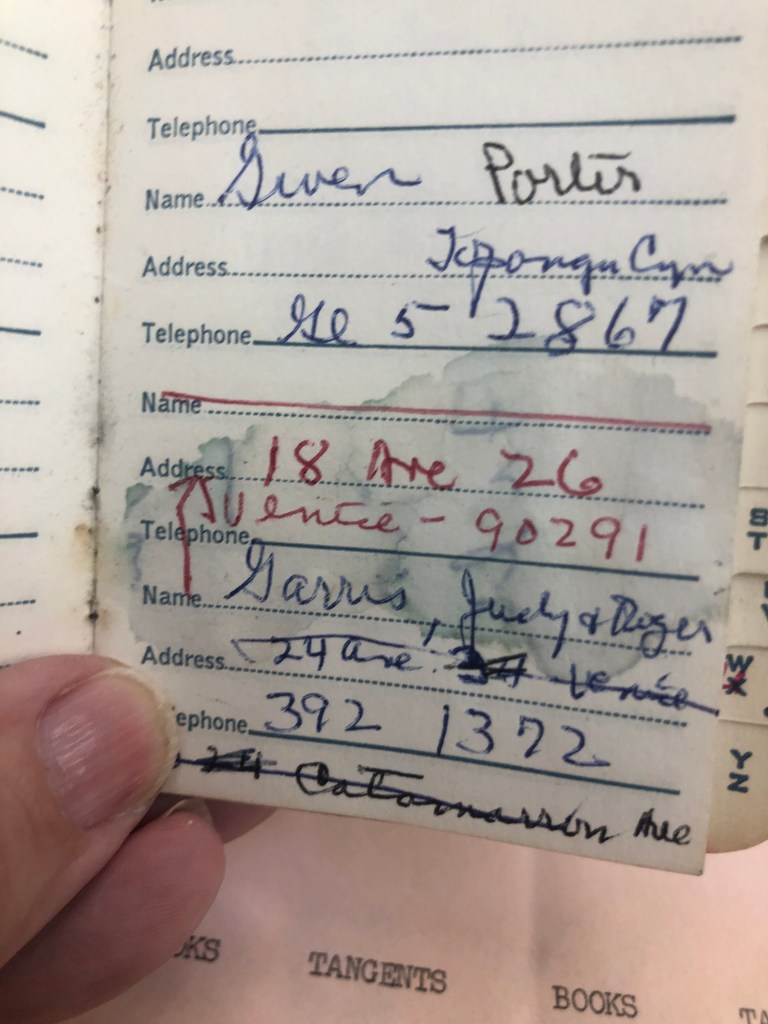 Address
Telephone
Name Gwen Porter
Address Toponga Cyn
Telephone Gl 5 2867
Name
Address 18 Ave 26
Venice - 90291
Telephone
Name Garris, Judy & Roger
Address 24 ave. Venice
ephone 392 1372
24 Catamarron Ave
S
T
W
X
Y
Z
OKS TANGENTS BOOKS TA